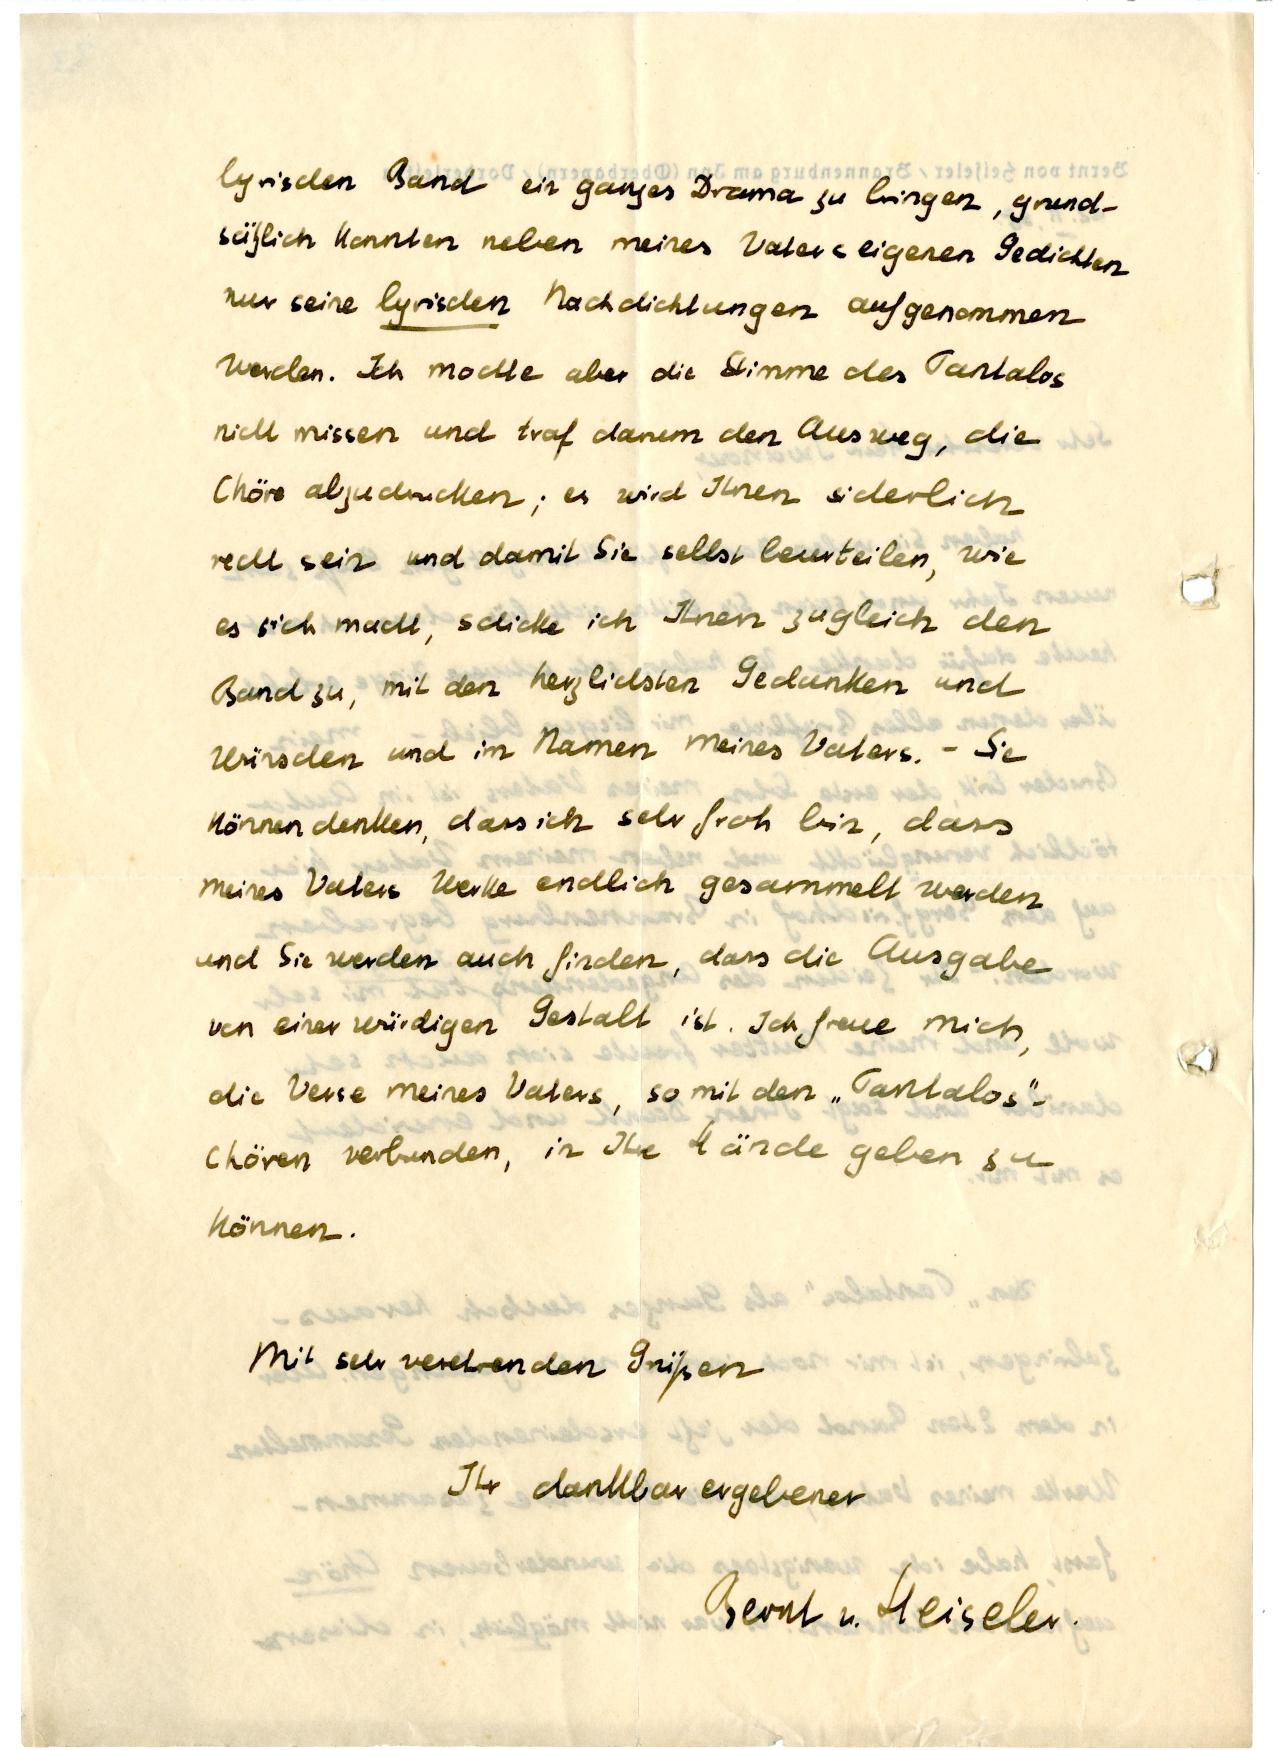 lyrischen Band ein ganzes Drama zu bringen, grund-
sätzlich konnten neben meines Vaters eigenen Gedichten
nur seine lyrischen Nachdichtungen aufgenommen
werden. Ich mochte aber die Stimme des Tantalos
nicht missen und traf darum den Ausweg, die
Chöre abzudrucken; es wird Ihnen sicherlich
recht sein und damit Sie selbst beurteilen, wie
es sich macht, schicke ich Ihnen zugleich den
Band zu, mit den herzlichsten Gedanken und
Wünschen und im Namen meines Vaters. – Sie
können denken, dass ich sehr froh bin, dass
meines Vaters Werke endlich gesammelt werden
und Sie werden auch finden, dass die Ausgabe
von einer würdigen Gestalt ist. Ich freue mich,
die Verse meines Vaters, so mit den „Tantalos"-
Chören verbunden, in Ihre Hände geben zu
können.
Mit sehr verehrenden Grüßen
Ihr dankbar ergebener
Bernt v. Heiseler.